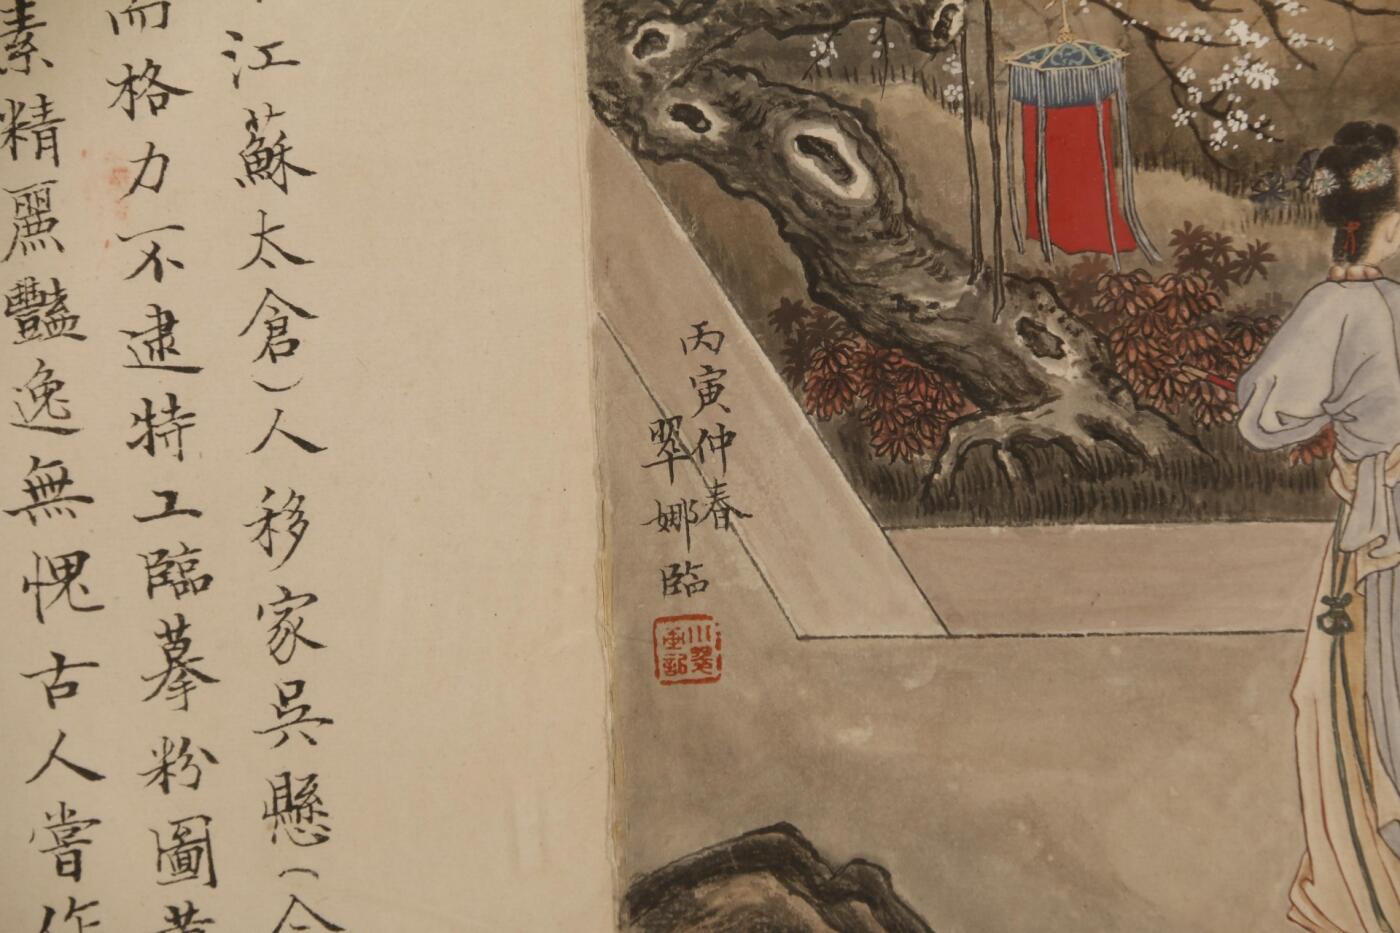 丙寅仲春
翠娜臨
江蘇太倉）人移家吳縣（今
而格力不逮特工臨摹粉圖黃
素精麗豔逸無愧古人嘗作